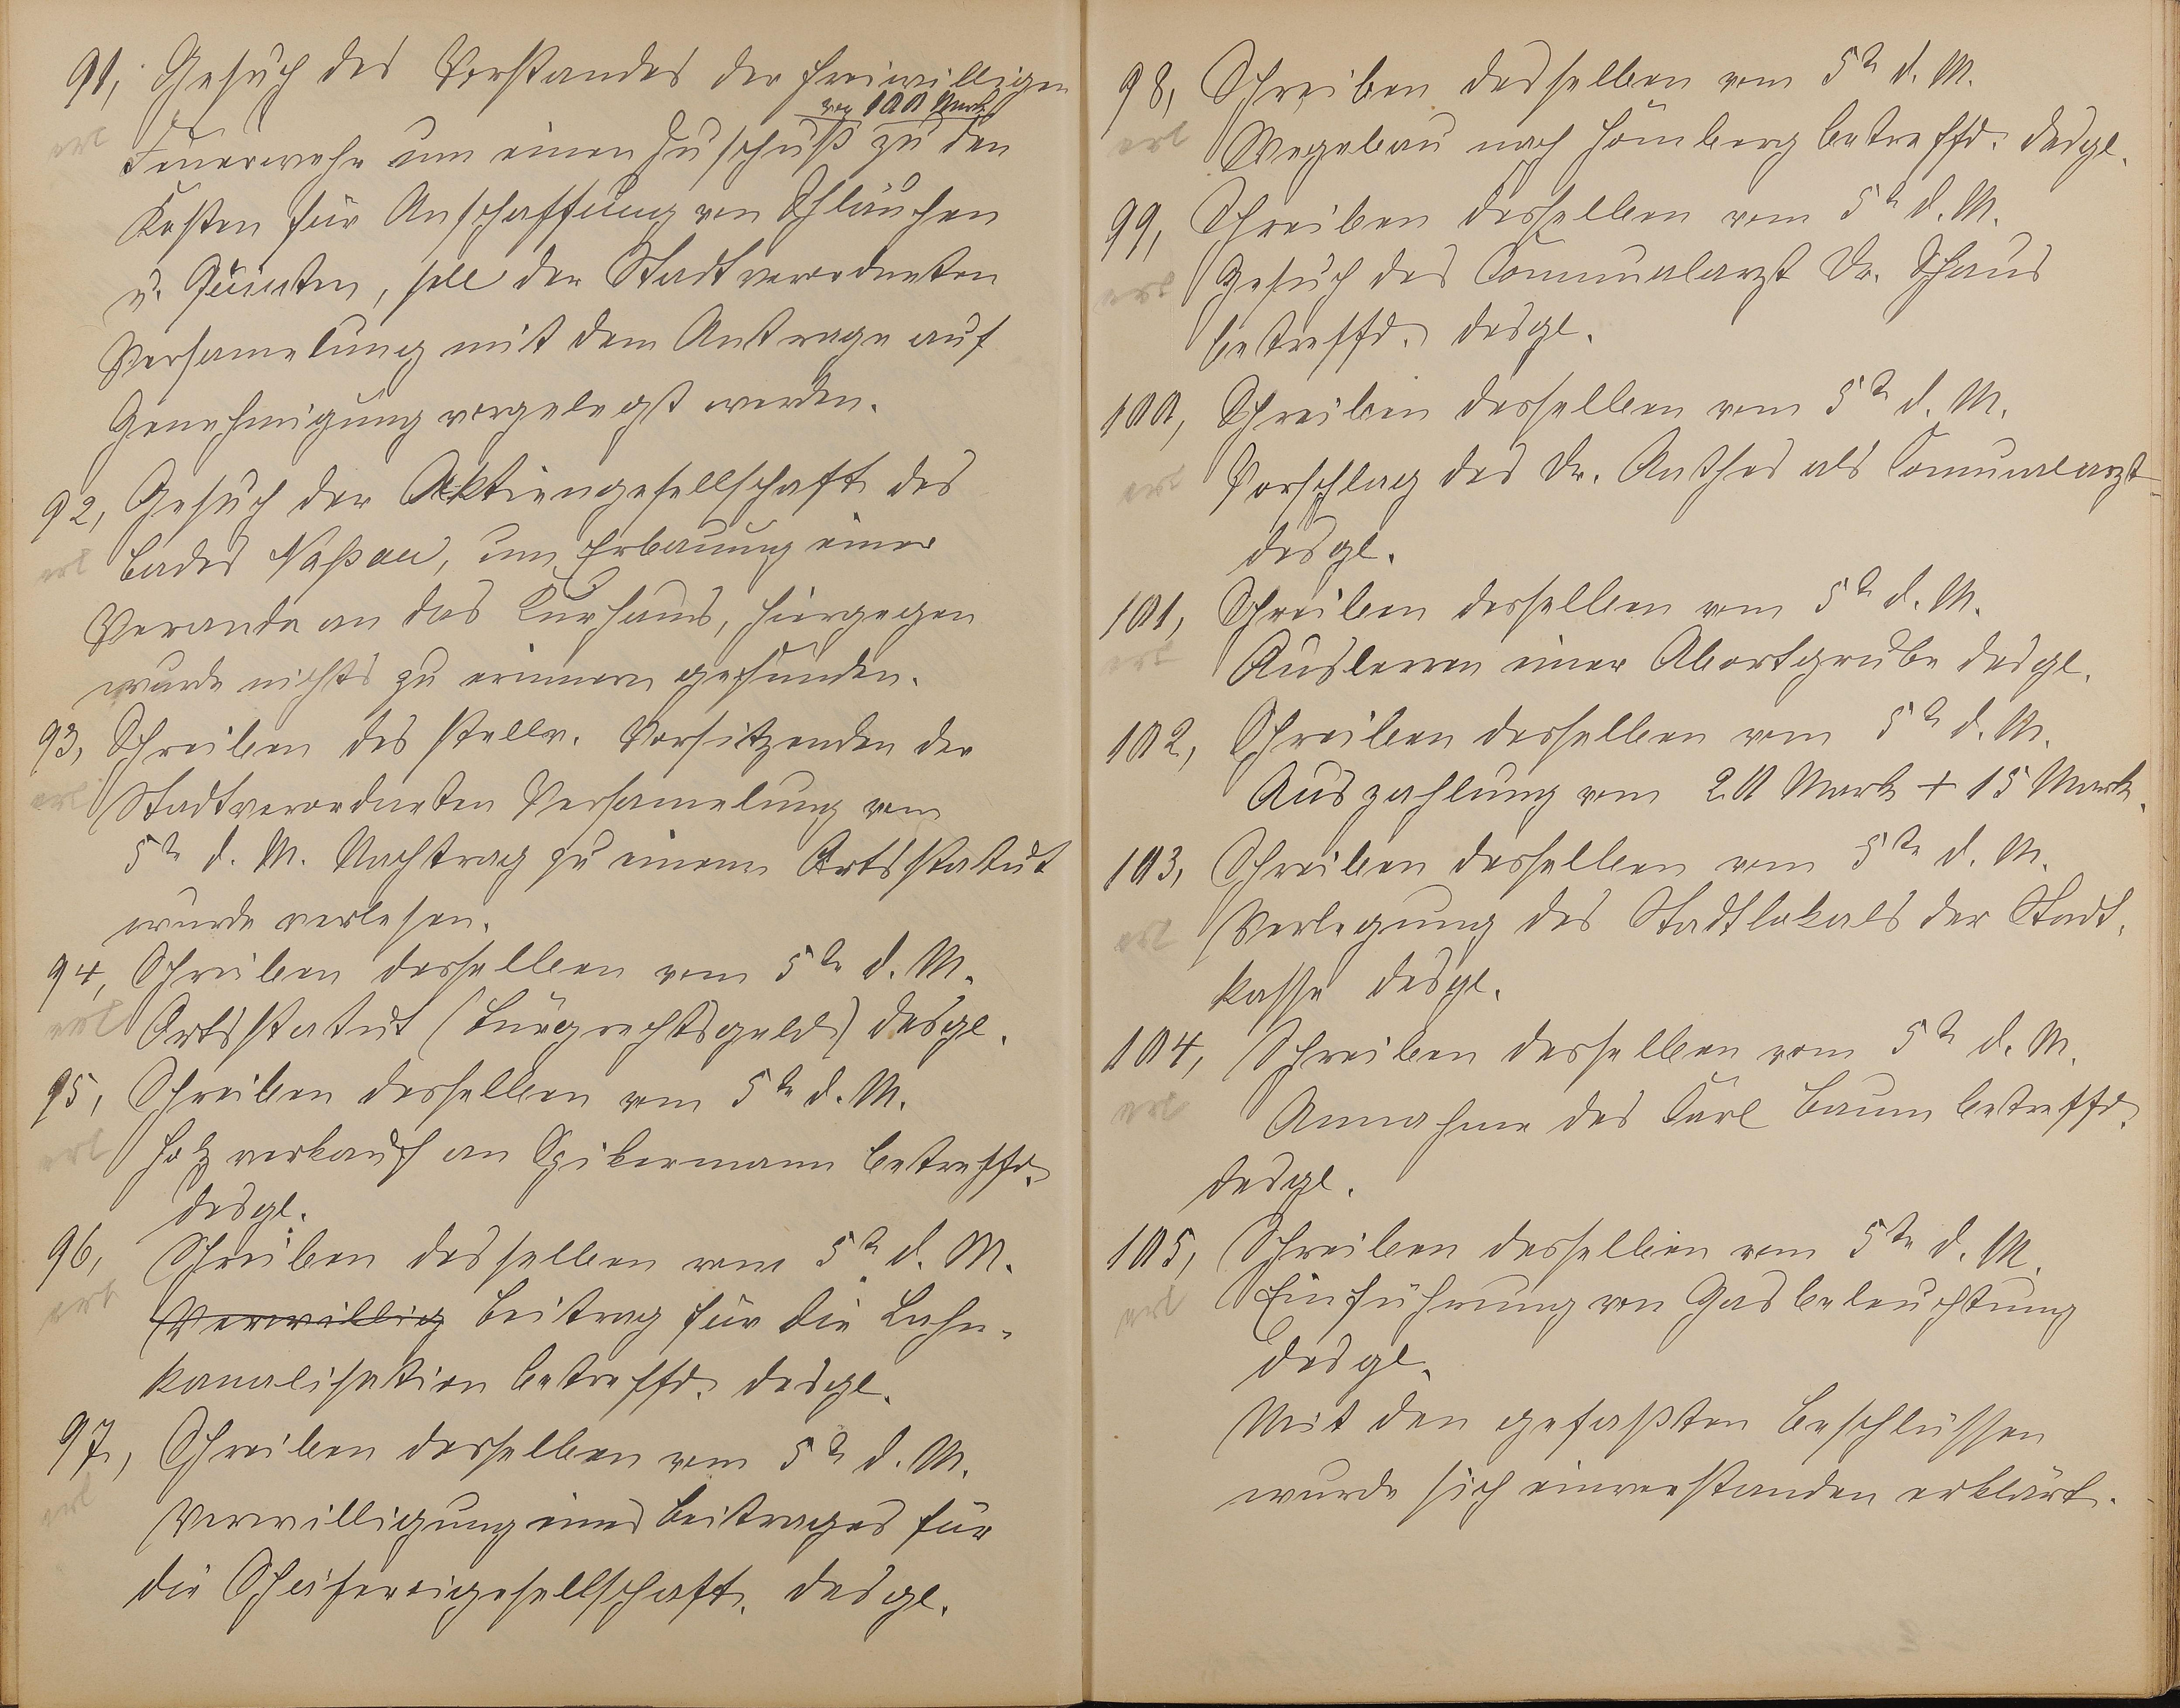 91, Gesuch des Vorstandes der freiwilligen
von 100 Mark
erl Feuerwehr um einen Zuschuß zu den
Kosten für Anschaffung von Schläuchen
u. Gurten, soll der Stadtverordneten
Versamelung mit dem Antrage auf
Genehmigung vorgelegt werden.
92, Gesuch der Aktiengesellschaft des
erl Bades Naßau, um Erbauung einer
Veranda an das Kurhaus, hiergegen
wurde nichts zu erinnern gefunden.
93, Schreiben des stellv. Vorsitzenden der
erl Stadtverordneten Versamelung vom
5ten d. M. Nachtrag zu einem Ortsstatut
wurde verlesen.
94, Schreiben desselben vom 5ten d. M.
erl Ortsstatut (Bürgrechtsgeld) desgl.
95, Schreiben desselben vom 5ten d. M.
erl Holzverkauf an Spikermann betreffd.
desgl.
96, Schreiben desselben vom 5ten d. M.
erl Verwillig Beitrag für die Lahn-
kanalisation betreffd. desgl.
97, Schreiben desselben vom 5ten d. M.
erl Verwilligung eines Beitrages für
die Schäfereigesellschaft. desgl.
98, Schreiben desselben vom 5ten d. M.
erl Wegebau nach Hömberg betreffd. desgl.
99, Schreiben desselben vom 5ten d. M.
erl Gesuch des Communalarzt Dr. Schaus
betreffd. desgl.
100, Schreiben desselben vom 5ten d. M.
erl Vorschlag des Dr. Anthes als Comunalarzt
desgl.
101, Schreiben desselben vom 5ten d. M.
erl Ausleeren einer Abortgrube desgl.
102, Schreiben desselben vom 5ten d. M.
Auszahlung von 20 Mark + 15 Mark.
103, Schreiben desselben vom 5ten d. M.
erl Verlegung des Stadtlokals der Stadt-
kasse desgl.
104, Schreiben desselben vom 5ten d. M.
erl Annahme des Karl Baum betreffd.
desgl.
105, Schreiben desselben vom 5ten d. M.
erl Einführung von Gasbeleuchtung
desgl.
Mit den gefaßten Beschlüssen
wurde sich einverstanden erklärt.